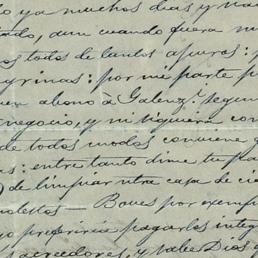 ya muchos dias y na
aun cuando fuera m
todos de tantos apuros: p
grinas: por mi parte p
abono à Galenz.ª segun
negocio, y ni siquiera con
de todos modos conviene q
as: entre tanto dime tu pla
de limpiar ntra casa de ci
molestos — Boves por exemp
preferiria pagarlos integ
acreedores, y sabe Dios